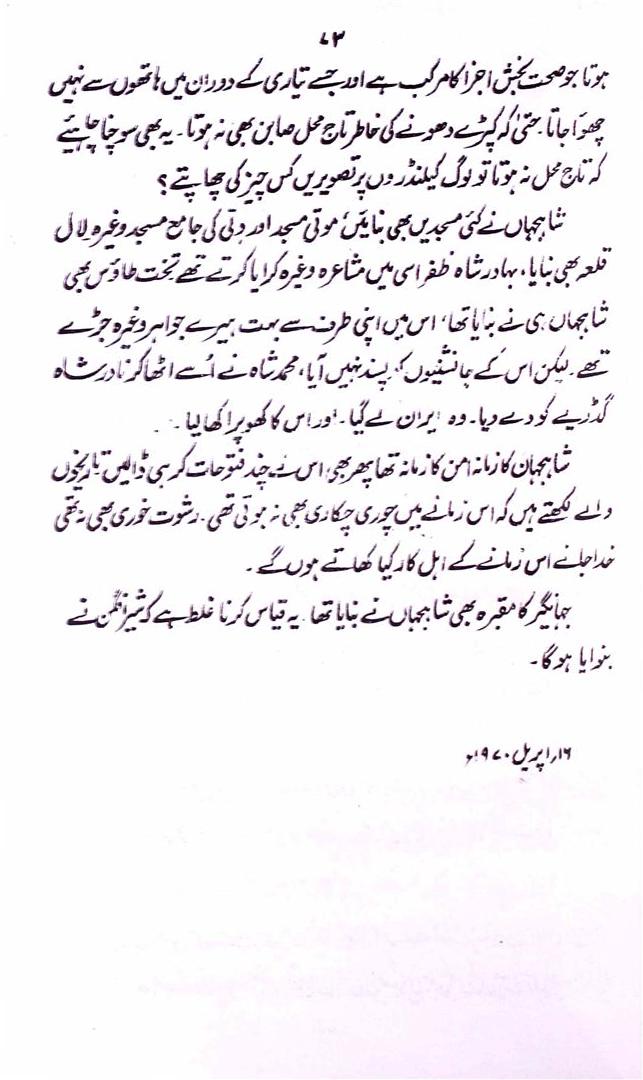 ۷۳
ہوتا جو صحت بخش اجزا کا مرکب ہے اور جسے تیاری کے دوران میں ہاتھوں سے نہیں
چھوا جاتا۔ حتیٰ کہ کپڑے دھونے کی خاطر تاج محل صابن بھی نہ ہوتا۔ یہ بھی سوچنا چاہیئے
کہ تاج محل نہ ہوتا تو لوگ کیلنڈروں پر تصویریں کس چیز کی چھاپتے؟
شاہجہاں نے کئی مسجدیں بھی بنائیں، موتی مسجد اور دلی کی جامع مسجد وغیرہ لال
قلعہ بھی بنایا، بہادر شاہ ظفر اسی میں مشاعرہ وغیرہ کرایا کرتے تھے تخت طاؤس بھی
شاہجہاں ہی نے بنایا تھا، اس میں اپنی طرف سے بہت ہیرے جواہر وغیرہ جڑے
تھے۔ لیکن اس کے جانشینوں کو پسند نہیں آیا، محمد شاہ نے اُسے اٹھا کر نادر شاہ
گڈریے کو دے دیا۔ وہ ایران لے گیا۔ اور اس کا کھوپرا کھا لیا۔
شاہجہان کا زمانہ امن کا زمانہ تھا پھر بھی اس نے چند فتوحات کر ہی ڈالیں تاریخوں
والے لکھتے ہیں کہ اس زمانے میں چوری چکاری بھی نہ ہوتی تھی۔ رشوت خوری بھی نہ تھی
خدا جانے اس زمانے کے اہل کار کیا کھاتے ہوں گے۔
جہانگیر کا مقبرہ بھی شاہجہاں نے بنایا تھا۔ یہ قیاس کرنا غلط ہے کہ شیر افگن نے
بنوایا ہو گا۔
۱۶؍ اپریل ۱۹۷۰ء